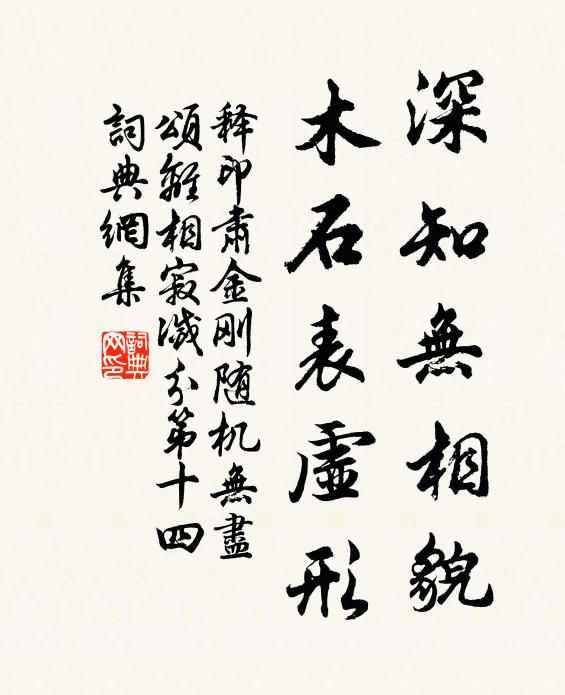 深知無相貌
木石表虛形
释印肅金刚随机無盡
頌離相寂滅分第十四
詞典網集
詞典网印